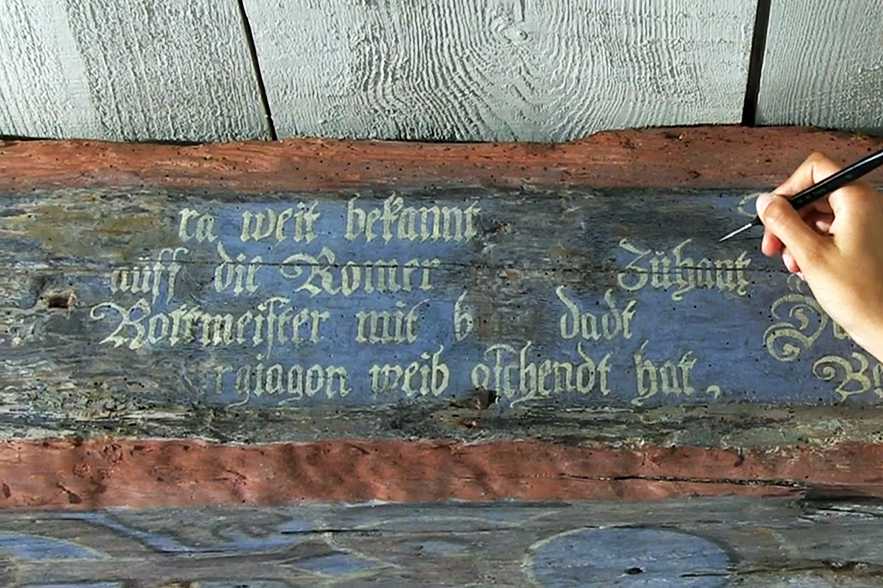 ra weit bekannt
auff die Romer Zühant
Rottmeister mit b dadt
rgiagon weib gschendt hat,